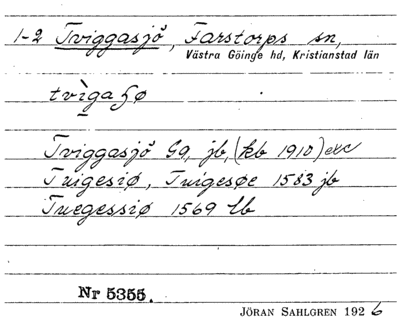 1-2 Tviggasjö, Farstorps sn,
Västra Göinge hd, Kristianstad län
tvìgaʃø
Tviggasjö Gg, jb, (kb 1910) etc
Tuigesiø, Tuigesøe 1583 jb
Tuegessiø 1569 lb
Nr 5355.
JÖRAN SAHLGREN 1926